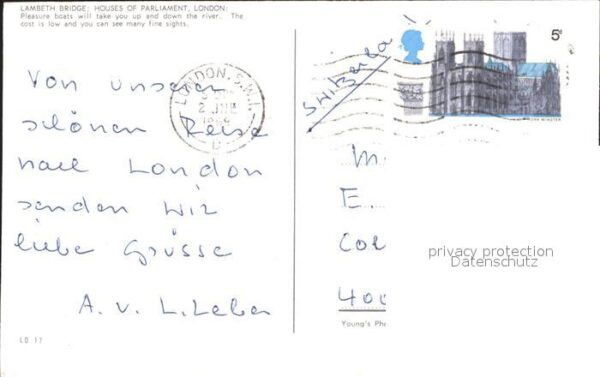 LAMBETH BRIDGE; HOUSES OF PARLIAMENT, LONDON:
Pleasure boats will take you up and down the river. The
cost is low and you can see many fine sights.
Von unserer
schönen Reise
nach London
senden wir
liebe Grüsse
A. v. L.
LD 17
LONDON. S.W.1.
2 JNE
D
5d
Switzerla
M
E.
privacy protection
Datenschutz
400
Young's